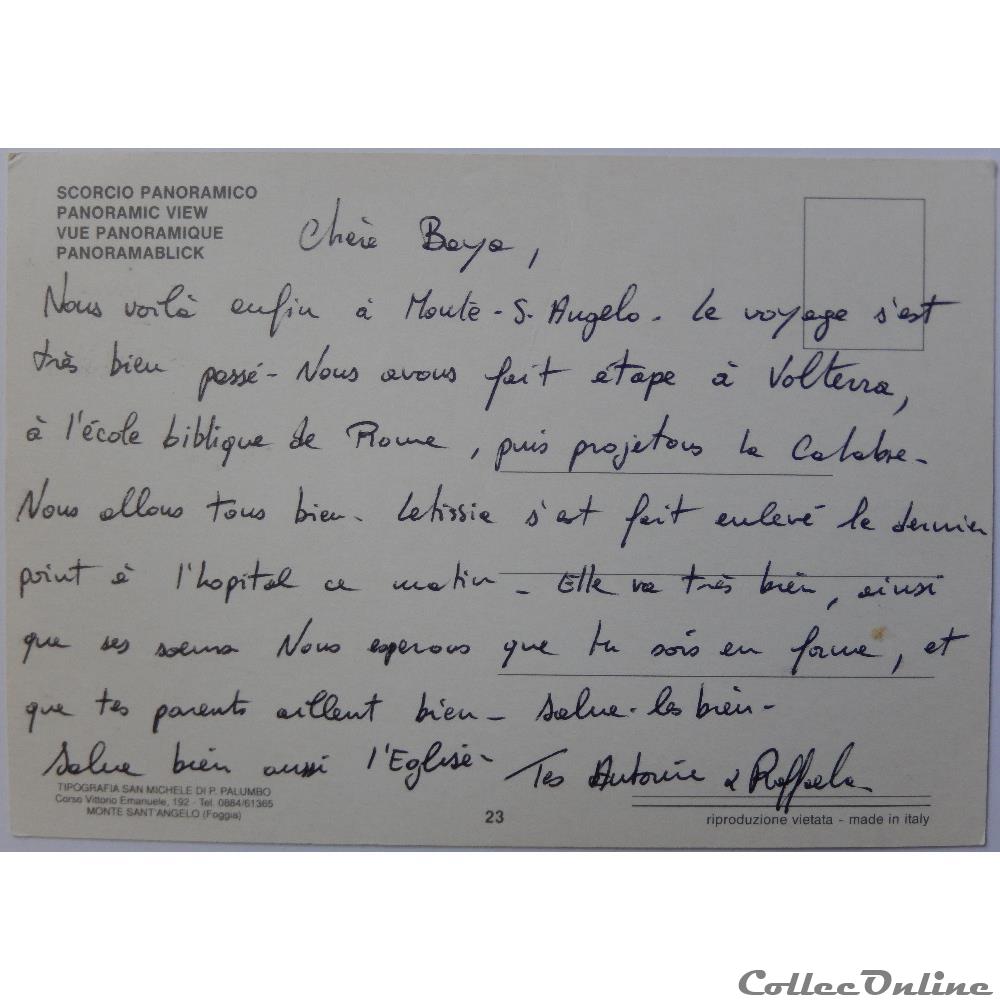 SCORCIO PANORAMICO
PANORAMIC VIEW
VUE PANORAMIQUE
PANORAMABLICK
Chère Baya,
Nous voilà enfin à Monte-S. Angelo. Le voyage s'est
très bien passé - Nous avons fait étape à Volterra,
à l'école biblique de Rome, puis projetons la Calabre -
Nous allons tous bien. Letissia s'est fait enlevé le dernier
point à l'hopital ce matin - Elle va très bien, ainsi
que ses soeurs Nous esperons que tu sois en forme, et
que tes parents aillent bien - Salue-les bien -
Salue bien aussi l'Eglise - Tes Antoine & Raffaela
TIPOGRAFIA SAN MICHELE DI P. PALUMBO
Corso Vittorio Emanuele, 192 - Tel. 0884/61365
MONTE SANT'ANGELO (Foggia)
23
riproduzione vietata - made in italy
CollecOnline